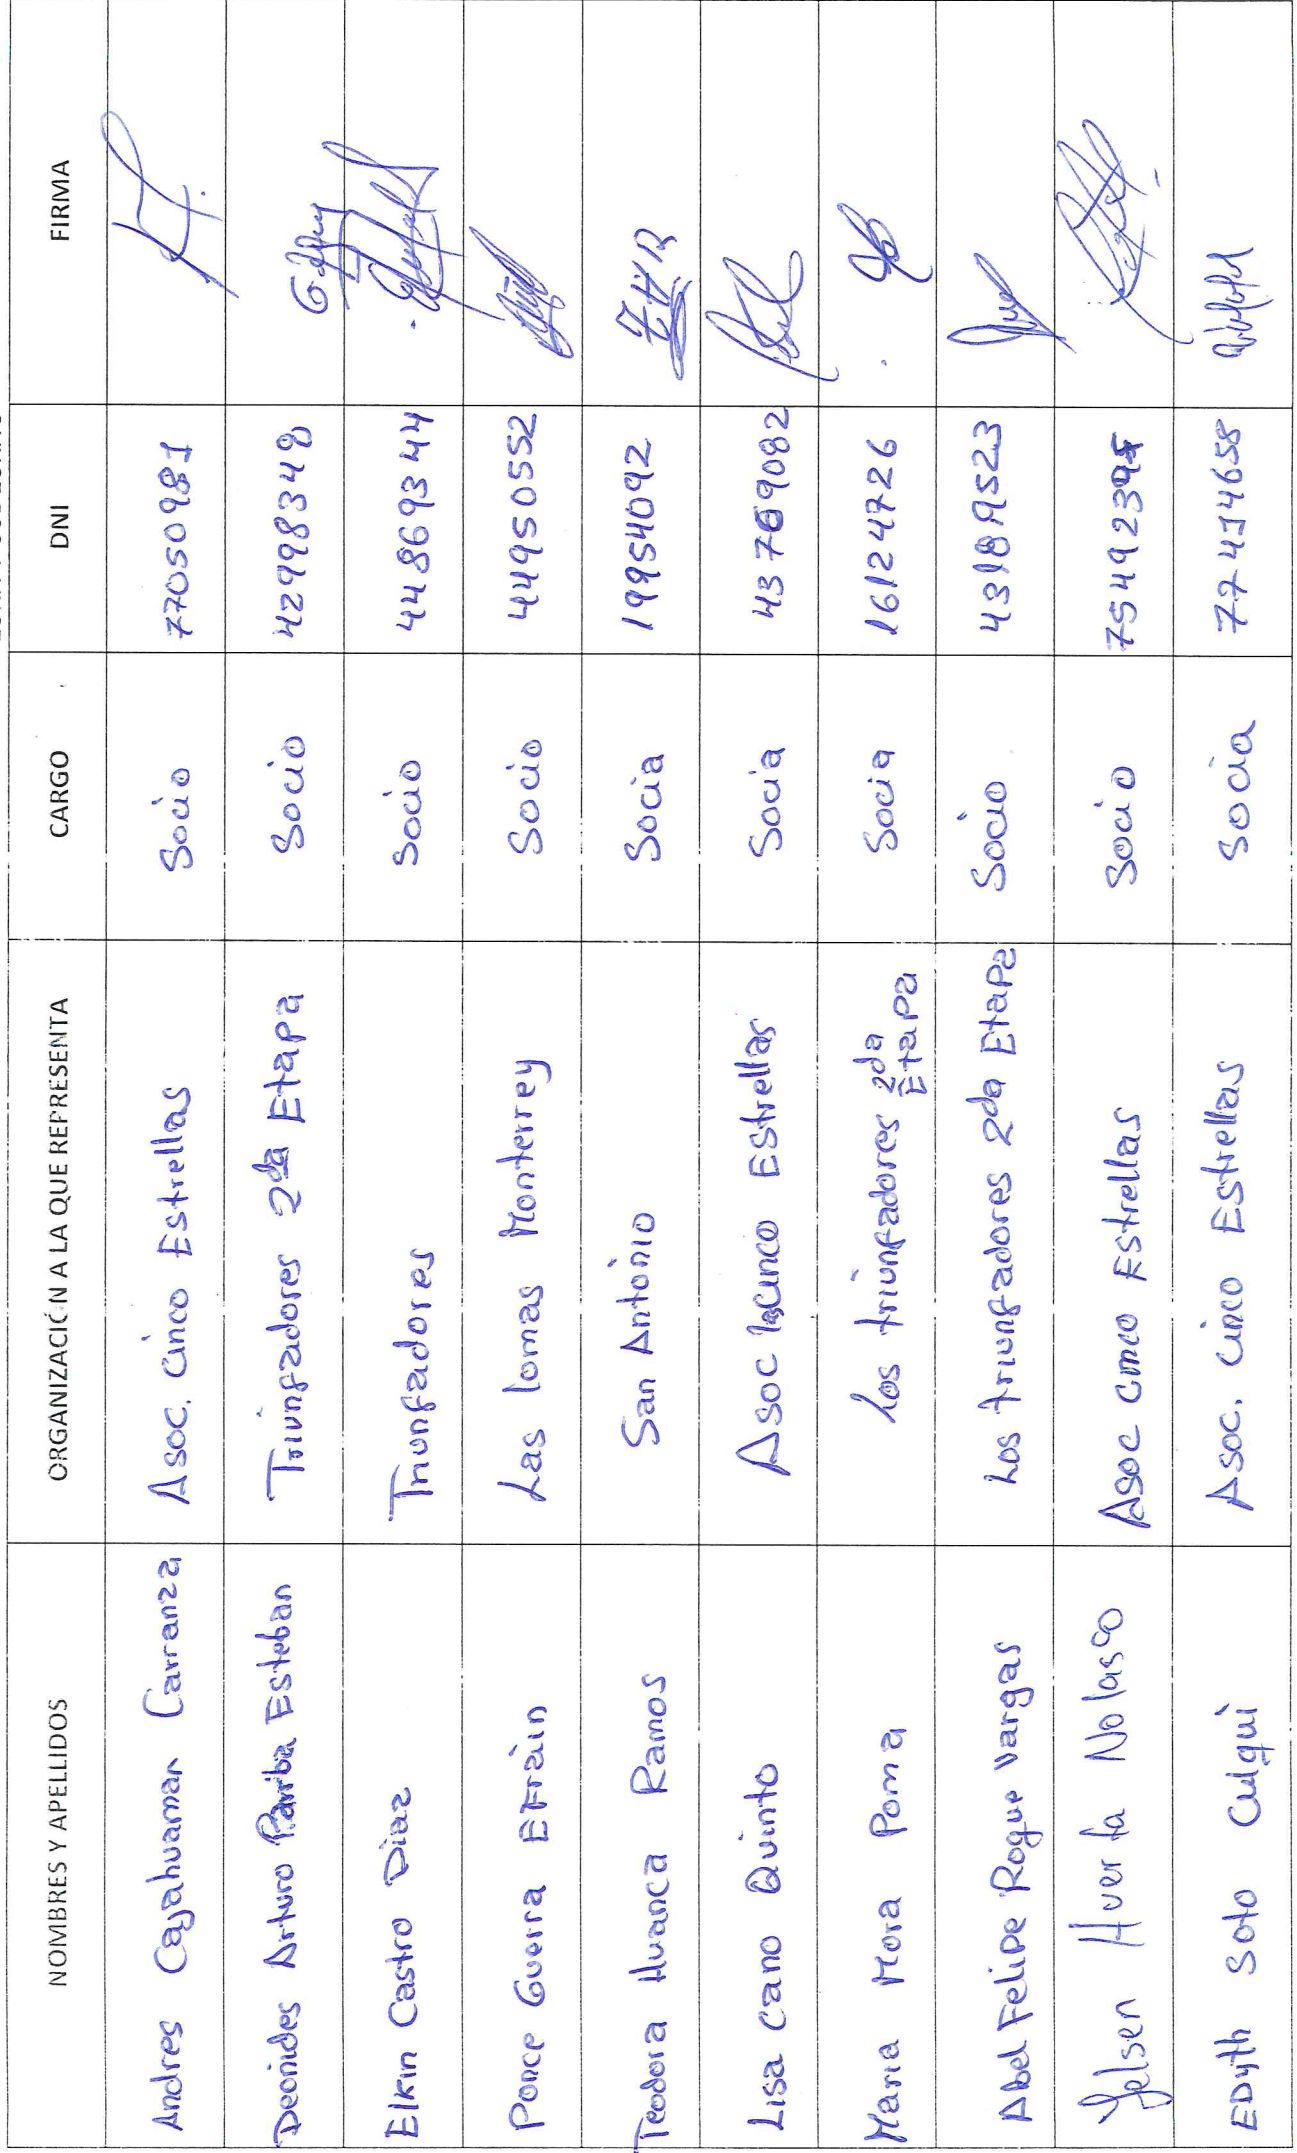 NOMBRES Y APELLIDOS ORGANIZACIÓN A LA QUE REPRESENTA CARGO DNI FIRMA
Andres Cajahuaman Carranza Asoc. Cinco Estrellas Socio 77050981
Deonides Arturo Parriba Esteban Triunfadores 2da Etapa Socio 42998348
Elkin Castro Diaz Triunfadores Socio 44869344
Ponce Guerra EFraìn Las lomas Monterrey Socio 44950552
Teodora Huanca Ramos San Antonio Socia 19954092
Lisa Cano Quinto Asoc Cinco Estrellas Socia 43769082
Maria Mora Poma Los triunfadores 2da Etapa Socia 16124726
Abel Felipe Roque Vargas Los triunfadores 2da Etapa Socio 43189523
Jelsen Huerta Nolasco Asoc Cinco Estrellas Socio
EDyth Soto Culqui Asoc. Cinco Estrellas Socia 77414658